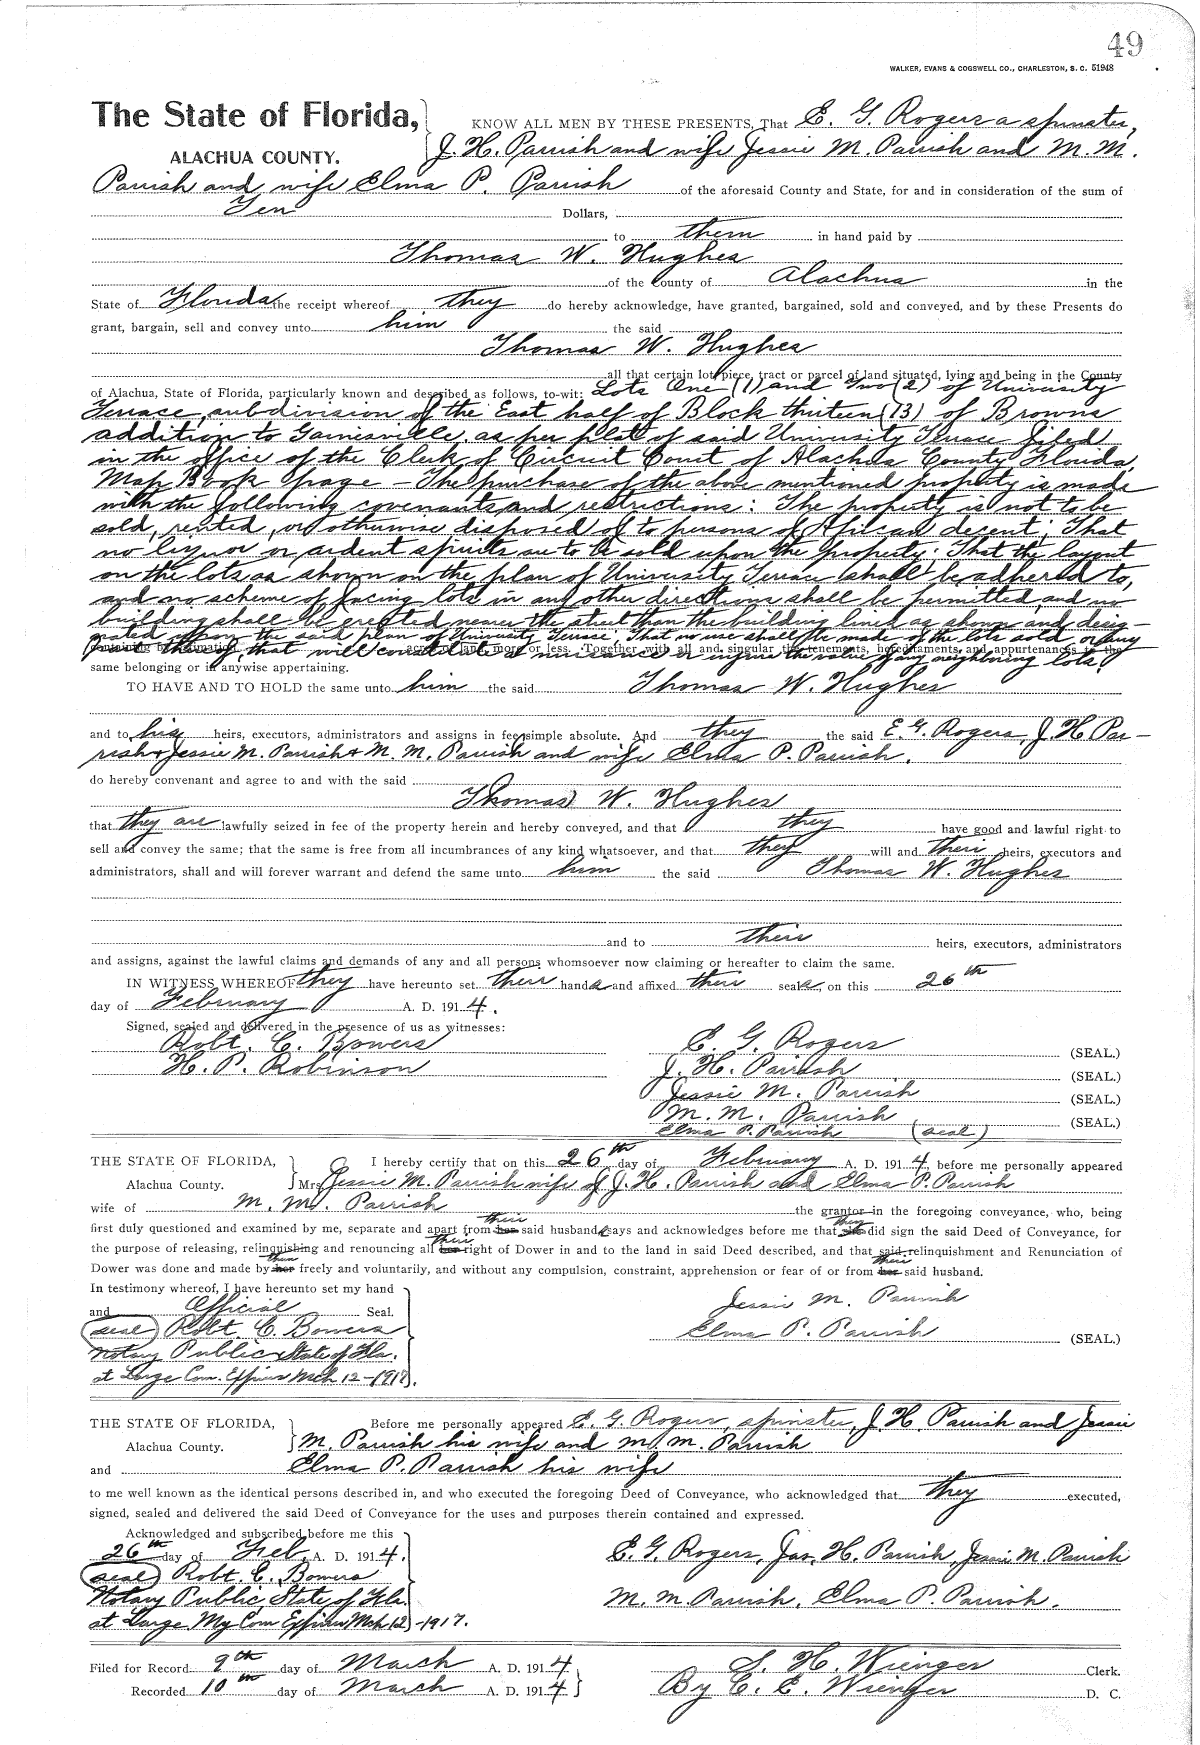 49
WALKER, EVANS & COGSWELL CO., CHARLESTON, S. C. 51948
The State of Florida, KNOW ALL MEN BY THESE PRESENTS, That E. G. Rogers a spinster,
ALACHUA COUNTY. J. H. Parrish and wife Jessie M. Parrish and M. M.
Parrish and wife Elma P. Parrish of the aforesaid County and State, for and in consideration of the sum of
Ten Dollars,
to them in hand paid by
Thomas W. Hughes
of the county of Alachua in the
State of Florida the receipt whereof they do hereby acknowledge, have granted, bargained, sold and conveyed, and by these Presents do
grant, bargain, sell and convey unto him the said
Thomas W. Hughes
all that certain lot, piece, tract or parcel of land situated, lying and being in the County
of Alachua, State of Florida, particularly known and described as follows, to-wit: Lots One (1) and Two (2) of University
Terrace, subdivision of the East half of Block thirteen (13) of Browns
addition to Gainesville, as per plat of said University Terrace filed
in the office of the Clerk of Circuit Court of Alachua County Florida,
Map Book page — The purchase of the above mentioned property is made
with the following covenants and restrictions: The property is not to be
sold, rented, or otherwise disposed of to persons of African decent; That
no liquor or ardent spirits are to be sold upon the property; That the layout
on the lots as shown on the plan of University Terrace shall be adhered to,
and no scheme of facing lots in any other directions shall be permitted, and no
building shall be erected nearer the street than the building lines as shown and desig-
nated upon the said plan of University Terrace; That no use shall be made of the lots sold or any
part thereof, that will constitute a nuisance or injure the value of any neighboring lots.
more or less. Together with all and singular the tenements, hereditaments, and appurtenances to the
same belonging or in anywise appertaining.
TO HAVE AND TO HOLD the same unto him the said Thomas W. Hughes
and to his heirs, executors, administrators and assigns in fee simple absolute. And they the said E. G. Rogers, J. H. Par-
rish & Jessie M. Parrish & M. M. Parrish and wife Elma P. Parrish.
do hereby convenant and agree to and with the said
Thomas W. Hughes
that they are lawfully seized in fee of the property herein and hereby conveyed, and that they have good and lawful right to
sell and convey the same; that the same is free from all incumbrances of any kind whatsoever, and that they will and their heirs, executors and
administrators, shall and will forever warrant and defend the same unto him the said Thomas W. Hughes
and to their heirs, executors, administrators
and assigns, against the lawful claims and demands of any and all persons whomsoever now claiming or hereafter to claim the same.
IN WITNESS WHEREOF they have hereunto set their hands and affixed their seals, on this 26th
day of February A. D. 1914.
Signed, sealed and delivered in the presence of us as witnesses:
Robt. C. Bowers E. G. Rogers (SEAL.)
H. P. Robinson J. H. Parrish (SEAL.)
Jessie M. Parrish (SEAL.)
M. M. Parrish (SEAL.)
Elma P. Parrish (seal)
THE STATE OF FLORIDA, I hereby certify that on this 26th day of February A. D. 1914, before me personally appeared
Alachua County. Mrs. Jessie M. Parrish wife of J. H. Parrish and Elma P. Parrish
wife of M. M. Parrish the grantor in the foregoing conveyance, who, being
first duly questioned and examined by me, separate and apart from her their said husband says and acknowledges before me that she they did sign the said Deed of Conveyance, for
the purpose of releasing, relinquishing and renouncing all her their right of Dower in and to the land in said Deed described, and that said relinquishment and Renunciation of
Dower was done and made by her them freely and voluntarily, and without any compulsion, constraint, apprehension or fear of or from her their said husband.
In testimony whereof, I have hereunto set my hand
and Official Seal. Jessie M. Parrish
(seal) Robt. C. Bowers Elma P. Parrish (SEAL.)
Notary Public State of Fla.
at Large Com. Expires Mch 12-1917.
THE STATE OF FLORIDA, Before me personally appeared E. G. Rogers, spinster, J. H. Parrish and Jessie
Alachua County. M. Parrish his wife and M. M. Parrish
and Elma P. Parrish his wife
to me well known as the identical persons described in, and who executed the foregoing Deed of Conveyance, who acknowledged that they executed,
signed, sealed and delivered the said Deed of Conveyance for the uses and purposes therein contained and expressed.
Acknowledged and subscribed before me this
26th day of Feb. A. D. 1914. E. G. Rogers, Jas. H. Parrish, Jessie M. Parrish
(seal) Robt. C. Bowers
Notary Public, State of Fla. M. M. Parrish, Elma P. Parrish.
at Large My Com Expires Mch 12-1917.
Filed for Record 9th day of March A. D. 1914 S. H. Wienges Clerk.
Recorded 10th day of March A. D. 1914 By C. E. Wienges D. C.